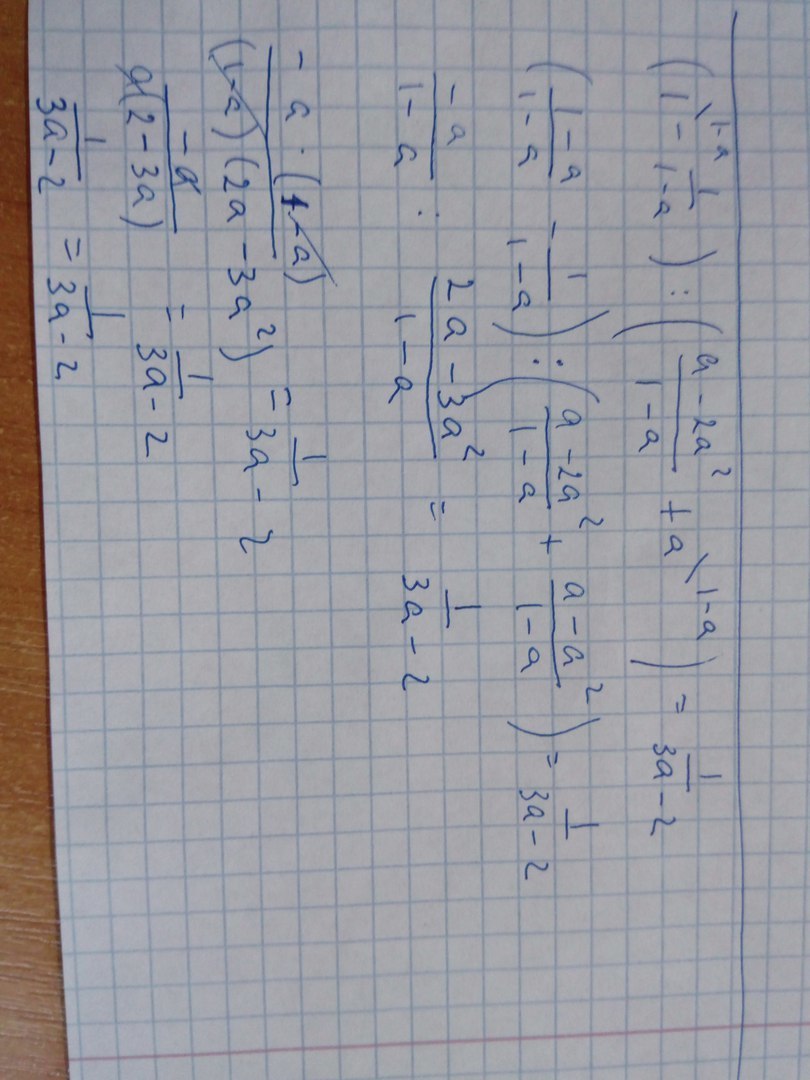 (1\^{1-a} - 1/(1-a)) : ((a-2a²)/(1-a) + a\^{1-a}) = 1/(3a-2)
((1-a)/(1-a) - 1/(1-a)) : ((a-2a²)/(1-a) + (a-a²)/(1-a)) = 1/(3a-2)
(-a)/(1-a) : (2a-3a²)/(1-a) = 1/(3a-2)
(-a·(1-a))/((1-a)(2a-3a²)) = 1/(3a-2)
(-a)/(a(2-3a)) = 1/(3a-2)
1/(3a-2) = 1/(3a-2)